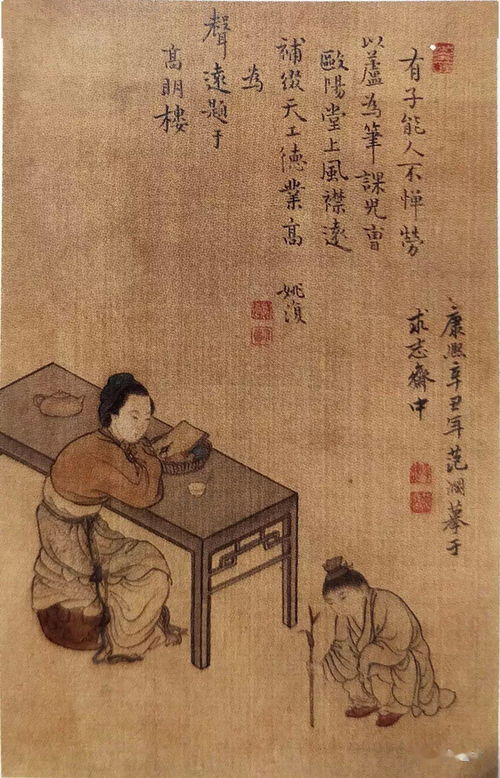 有子能人不憚勞
以蘆為筆課兒曹
歐陽堂上風襟遠
補綴天工德業高
姚湏
為
聲遠題于
高明樓
康熙辛丑年范潤摹于
求志齋中